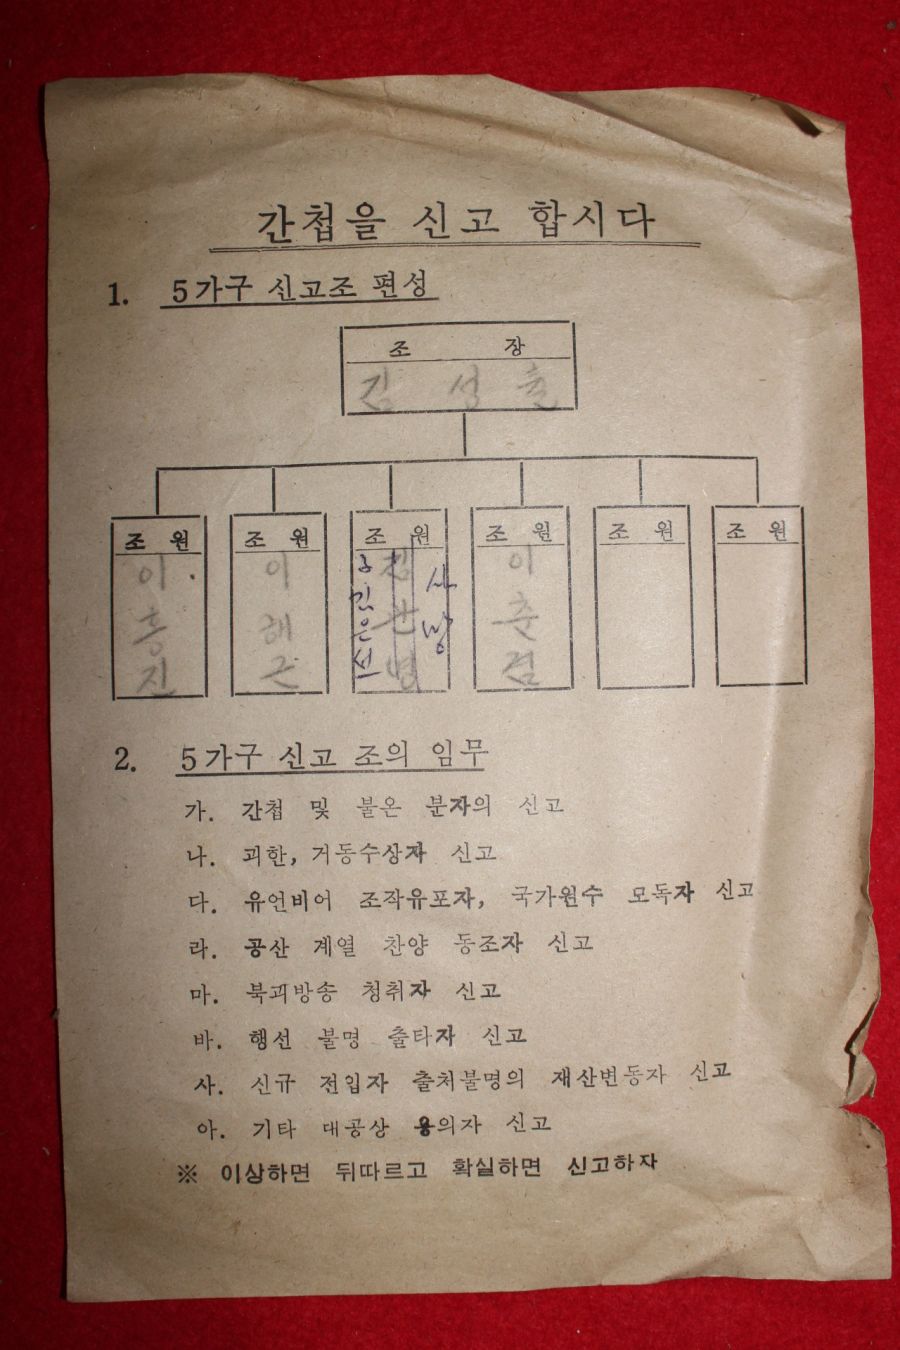 간첩을 신고 합시다
1. 5가구 신고조 편성
조 장
김 성 출
조 원 조 원 조 원 조 원 조 원 조 원
이 홍 진
이 해 근
사망
이 춘
2. 5가구 신고 조의 임무
가. 간첩 및 불온 분자의 신고
나. 괴한, 거동수상자 신고
다. 유언비어 조작유포자, 국가원수 모독자 신고
라. 공산 계열 찬양 동조자 신고
마. 북괴방송 청취자 신고
바. 행선 불명 출타자 신고
사. 신규 전입자 출처불명의 재산변동자 신고
아. 기타 대공상 용의자 신고
※ 이상하면 뒤따르고 확실하면 신고하자